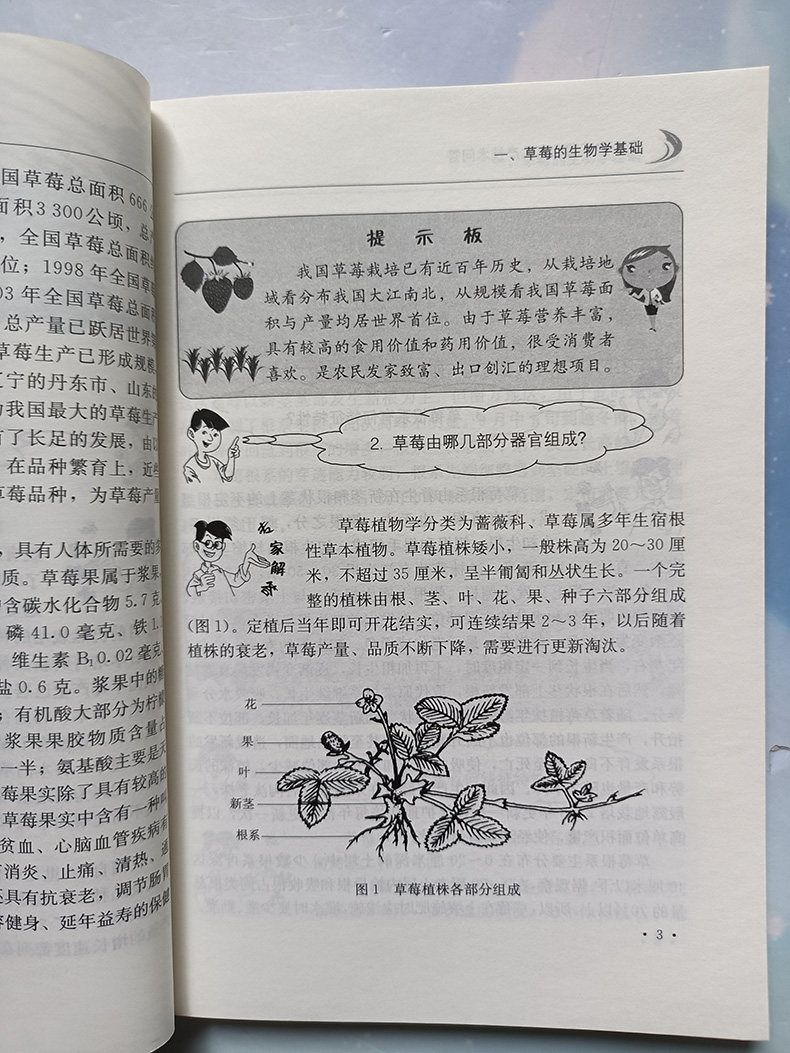 国草莓总面积 666
面积3 300公顷，总产
，全国草莓总面积
位；1998 年全国草莓
03 年全国草莓总面积
总产量已跃居世界
草莓生产已形成规模
辽宁的丹东市、山东的
为我国最大的草莓生产
有了长足的发展，由
在品种繁育上，近些
草莓品种，为草莓产量
，具有人体所需要的
质。草莓果属于浆果
中含碳水化合物 5.7 克
磷 41.0 毫克、铁 1.
维生素 B₁0.02 毫克
盐 0.6 克。浆果中的糖
；有机酸大部分为柠檬
浆果果胶物质含量占
一半；氨基酸主要是天
莓果实除了具有较高的
草莓果实中含有一种叫
贫血、心脑血管疾病有
消炎、止痛、清热、通
还具有抗衰老，调节肠胃
健身、延年益寿的保健
一、草莓的生物学基础
提 示 板
我国草莓栽培已有近百年历史，从栽培地
域看分布我国大江南北，从规模看我国草莓面
积与产量均居世界首位。由于草莓营养丰富，
具有较高的食用价值和药用价值，很受消费者
喜欢。是农民发家致富、出口创汇的理想项目。
2. 草莓由哪几部分器官组成?
名家解答
草莓植物学分类为蔷薇科、草莓属多年生宿根
性草本植物。草莓植株矮小，一般株高为 20～30 厘
米，不超过 35 厘米，呈半匍匐和丛状生长。一个完
整的植株由根、茎、叶、花、果、种子六部分组成
(图 1)。定植后当年即可开花结实，可连续结果 2～3 年，以后随着
植株的衰老，草莓产量、品质不断下降，需要进行更新淘汰。
花
果
叶
新茎
根系
图 1 草莓植株各部分组成
· 3 ·